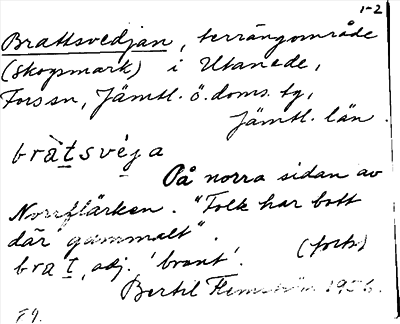 1-2
Brattsvedjan, terrängområde
(skogsmark) i Utanede,
Fors sn, Jämtl. ö. doms. tg,
Jämtl. län.
bràtsvéja
På norra sidan av
Norrflärken. "Folk har bott
där gammalt".
brat, adj. 'brant'. (forts)
Bertil Flemström